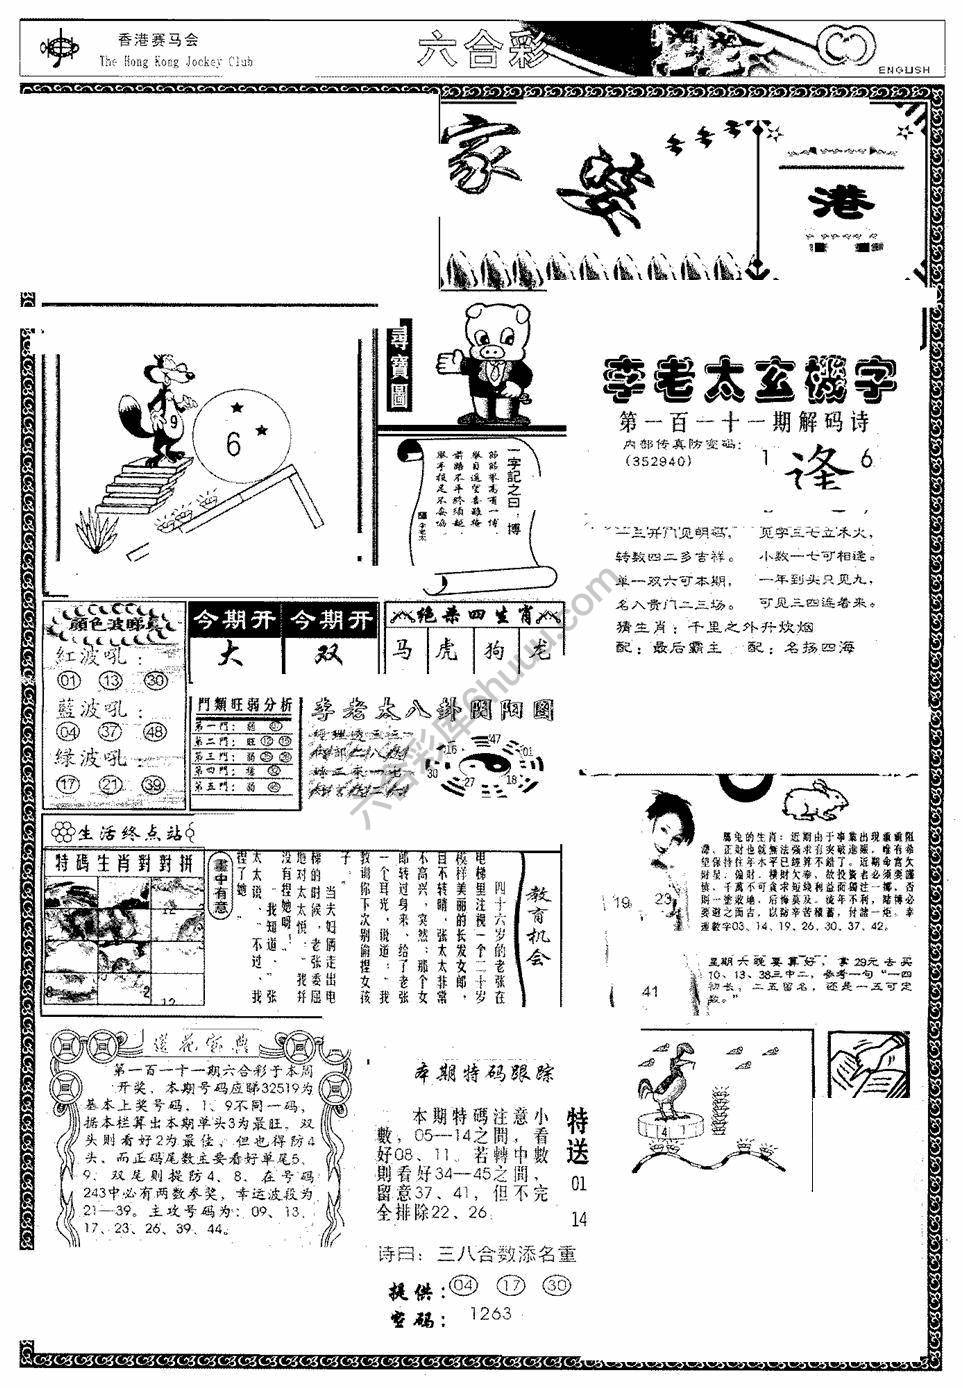 香港赛马会
The Hong Kong Jockey Club
六合彩
ENGLISH
家
港
尋寶圖
9
6
一字記之曰:博
李老太玄機字
第一百一十一期解码诗
内部传真防密码:
(352940)
1
逢
6
一三开门见明码,
见字三七立木火,
转数四二多吉祥。
小数一七可相逢。
单一双六可本期,
一年到头只见九,
名入贵门二三场。
可见三四连着来。
猜生肖:千里之外升炊烟
配:最后霸主 配:名扬四海
顏色波睇真
紅波吼:
01 13 30
藍波吼:
04 37 48
绿波吼:
17 21 39
今期开 今期开
大 双
绝杀四生肖
马 虎 狗 龙
門類旺弱分析
第一門:弱
第二門:旺
第三門:弱
第五門:弱
李老太八卦陰阳图
47
16
01
30
27
18
生活终点站
特碼生肖對對拼
畫中有意
教育机会
四十六岁的老张在
电梯里注视一个二十岁
模样美丽的长发女郎,
不高兴,突然:那个女
郎转过身来、给了老张
一个耳光,说道:“我
教训你下次别偷捏女孩
子。”
当夫妇俩走出电
梯的时候,老张委屈
地对太太说:“我并
没有捏她呀!”
“我知道,”张
太太说,“不过,我
捏了她。”
19
23
41
屬兔的生肖:近期由于事業出現重重阻
滯、正財也就無法强求有突破進賬。唯有希
望保持往年水平已經算不錯了。近期命宮欠
財星,偏財、横財欠奉、故投資者必須要謹
慎,千萬不可貪求短綫利益而獨注一擲、否
則一塗敗地、后悔莫及。流年不利,賭博必
要避之而吉,以防辛苦積蓄,付諸一炬。幸
運數字03、14、19、26、30、37、42。
星期六晚要算好,拿29元去买
10、13、38三中二,参考一句“一四
初长,二五留名,还是一五可定
数。”
莲花宝典
第一百一十一期六合彩于本周
开奖,本期号码应睇32519为
基本上奖号码,1、9不同一码,
据本栏算出本期单头3为最旺,双
头则看好2为最佳,但也得防4
头、而正码尾数主要看好单尾5、
9,双尾则提防4、8、在号码
243中必有两数参奖,幸运波段为
21—39。主攻号码为:09、13、
17、23、26、39、44。
本期特码跟踪
本期特碼注意小
數,05—14之間,看
好08、11。若轉中數
則看好34—45之間,
留意37、41,但不完
全排除22、26.
特送
01
14
诗曰:三八合数添名重
提供: 04 17 30
密码: 1263
14 1
六合彩库6huuu.com